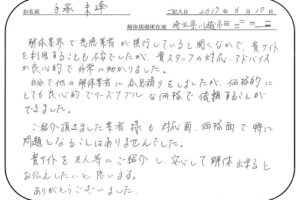 お名前 手塚 ご記入日 2017年6月10日
解体現場所在地 埼玉県川越市
解体業界で悪徳業者が横行していると聞くなかで、貴サイト
を利用することも不安でしたが、貴スタッフの対応・アドバイス
が良心的で非常に助かりました。
自分で他の解体業者に合見積りをしましたが、価格的に
とても良心的でリーズナブルな価格で依頼することが
できました。
ご紹介頂きました業者様も対応面、価格面で特に
問題となることはありませんでした。
貴サイトを友人等にご紹介し、安心して解体出来ると
お伝えしたいと思います。
ありがとうございました。